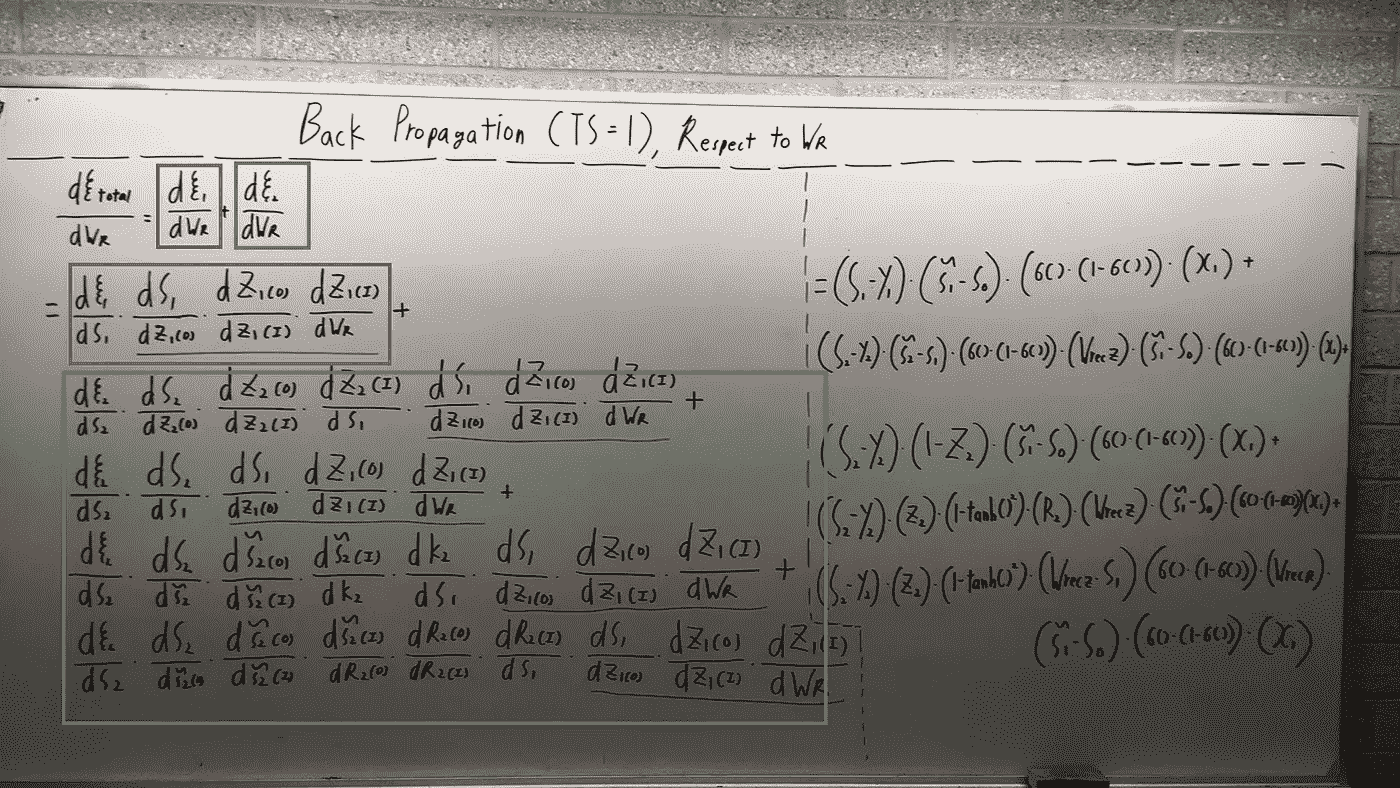 Back Propagation (TS=1), Respect to WR
dξtotal/dWR = dξ1/dWR + dξ2/dWR
= dξ1/dS1 · dS1/dZ1(O) · dZ1(O)/dZ1(I) · dZ1(I)/dWR +
dξ2/dS2 · dS2/dZ2(O) · dZ2(O)/dZ2(I) · dZ2(I)/dS1 · dS1/dZ1(O) · dZ1(O)/dZ1(I) · dZ1(I)/dWR +
dξ2/dS2 · dS2/dS1 · dS1/dZ1(O) · dZ1(O)/dZ1(I) · dZ1(I)/dWR +
dξ2/dS2 · dS2/dS̃2 · dS̃2(O)/dS̃2(I) · dS̃2(I)/dk2 · dk2/dS1 · dS1/dZ1(O) · dZ1(O)/dZ1(I) · dZ1(I)/dWR +
dξ2/dS2 · dS2/dS̃2(O) · dS̃2(O)/dS̃2(I) · dS̃2(I)/dR2(O) · dR2(O)/dR2(I) · dR2(I)/dS1 · dS1/dZ1(O) · dZ1(O)/dZ1(I) · dZ1(I)/dWR
=(S1-Y1)·(S̃1-S0)·(6()·(1-6()))·(X1)+
(S2-Y2)·(S̃2-S1)·(6()·(1-6()))·(Vrecz)·(S̃1-S0)·(6()·(1-6()))·(X1)+
(S2-Y2)·(1-Z2)·(S̃1-S0)·(6()·(1-6()))·(X1)+
(S2-Y2)·(Z2)·(1-tanh()²)·(R2)·(Wrecz)·(S̃1-S0)·(6()·(1-6()))(X1)+
(S2-Y2)·(Z2)·(1-tanh()²)·(Wrecz·S1)(6()·(1-6()))·(VrecR)·
(S̃1-S0)·(6()·(1-6()))·(X1)